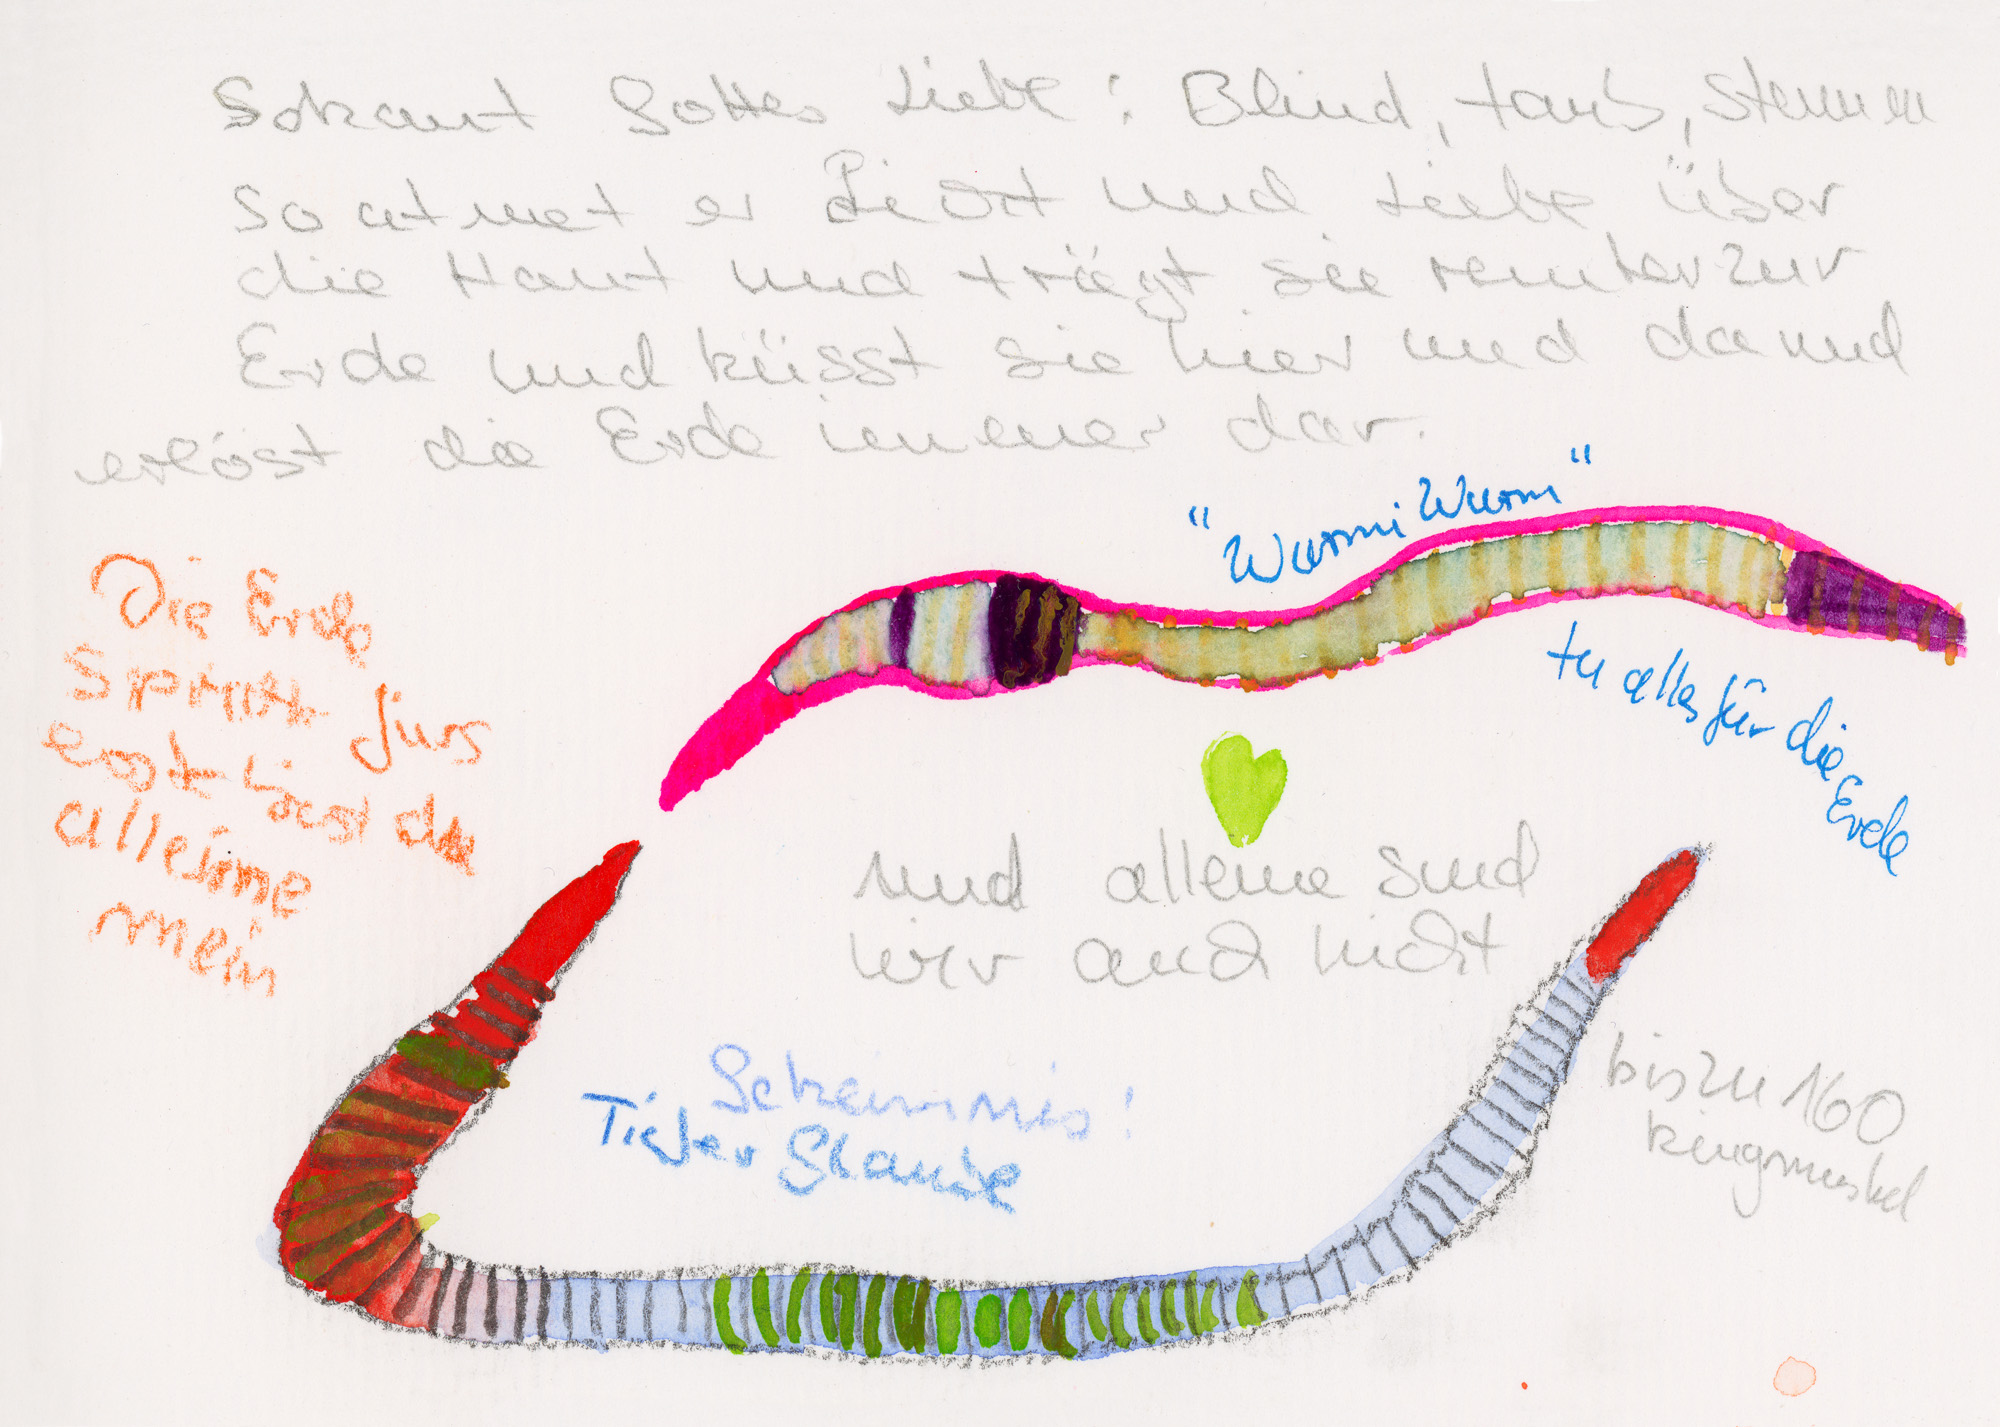 Gottes Liebe: Blind, taub,
So atmet er Licht und Liebe über
die Haut und trägt sie runter zur
Erde und küsst sie hier und da und
erlöst die Erde immer dar.
"Wurmi Wurm"
tu alles für die Erde
Die Erde
spricht fürs
erste
alleine
mein
und alleine sind
wir auch nicht
Geheimnis!
Tiefer Glaube
bis zu 160
Ringmuskel